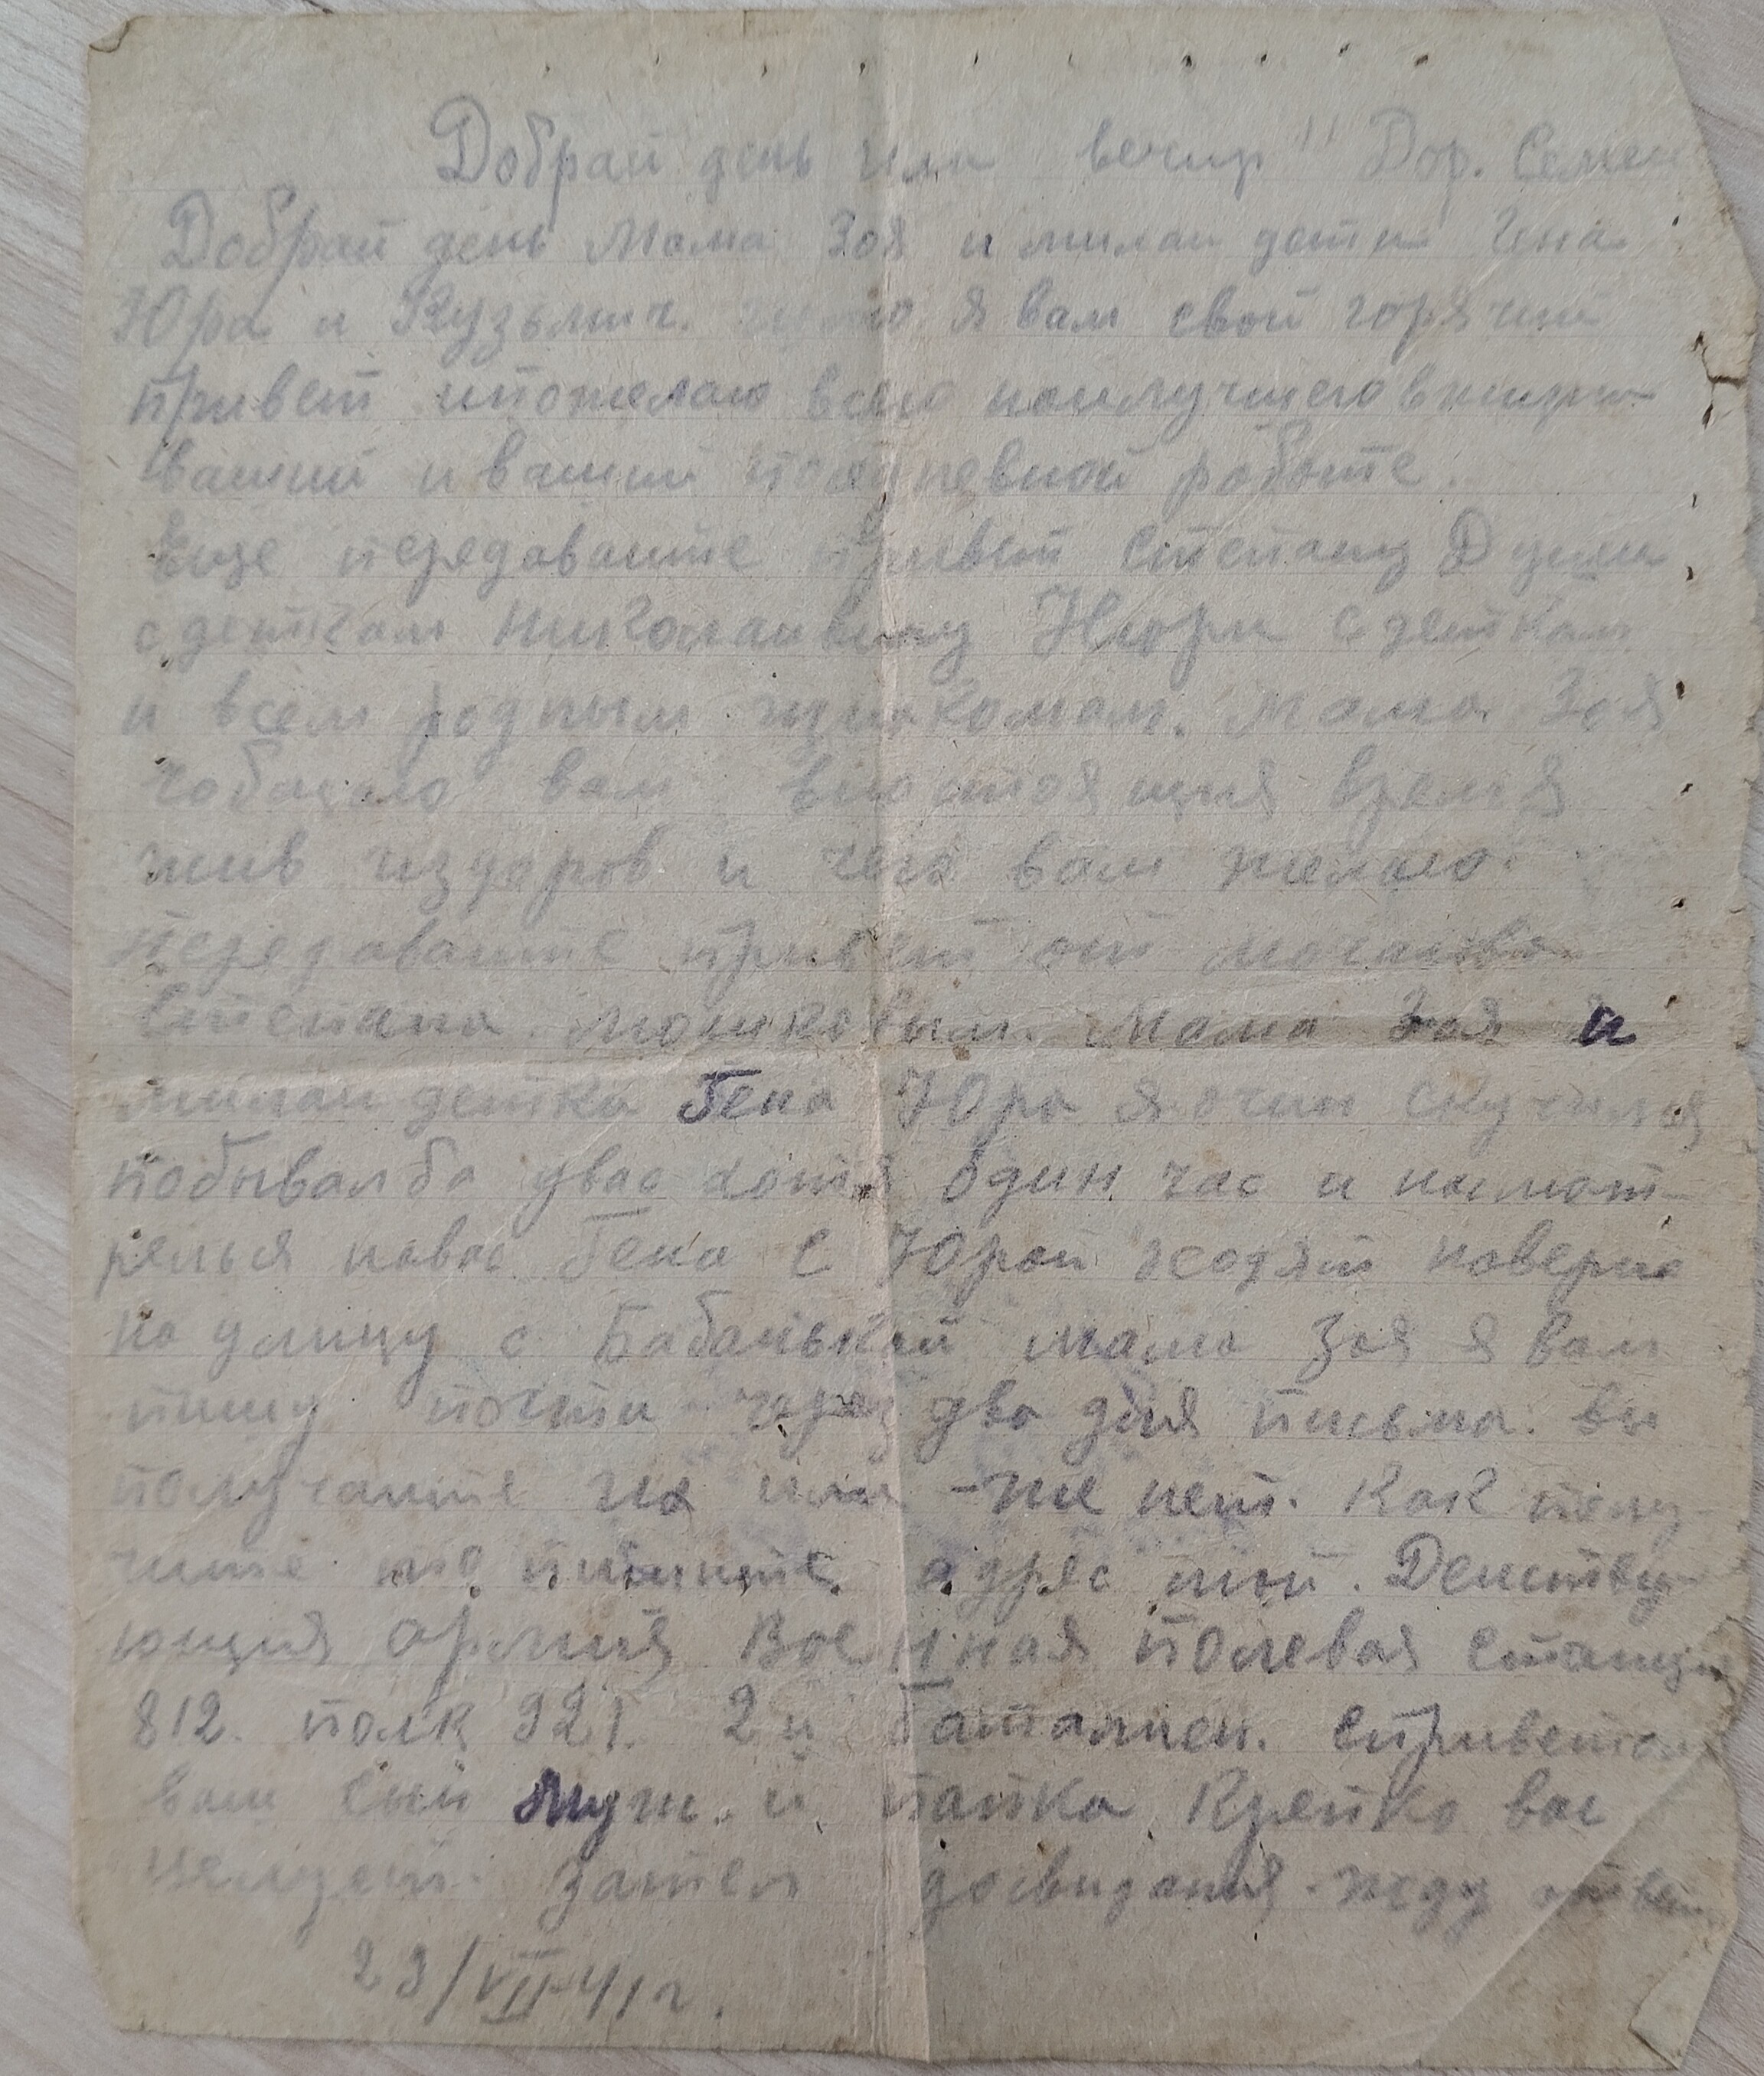 Добрай день или вечир" Дор. Семен
Добрай день Мама Зоя и милаи дети Гена
Юра и Кузьмич. шлю я вам свой горячий
привет ипожелаю всего наилучшего вжизни
вашей и вашей поедневной работе.
Еще передоваите привет Степану Души
сдеткам Николаивичу Нюри сдеткам
и всем родным знакомам. Мама Зоя
собщаю вам внастоящия время
жив издоров и чего вам желаю.
Передоваите привет от
Степана. Мама Зоя и
милаи детки Гена Юра я очин скучился
побывалба увас хотя один час и насмот-
релья навас Гена с Юрой ходят наверна
на улицу с Бабанькай мама Зоя я вам
пишу почти через два дня письма. вы
получаите их или -же нет. Как полу-
чите то пишите адрес мой. Деиству-
ющия армия Военная полевая станция
812. полк 921. 2й баталиен. Сприветом
ваш сын муж. и папка. Крепко вас
целует. затем досвидания. жду ответ
23/VII-41г.